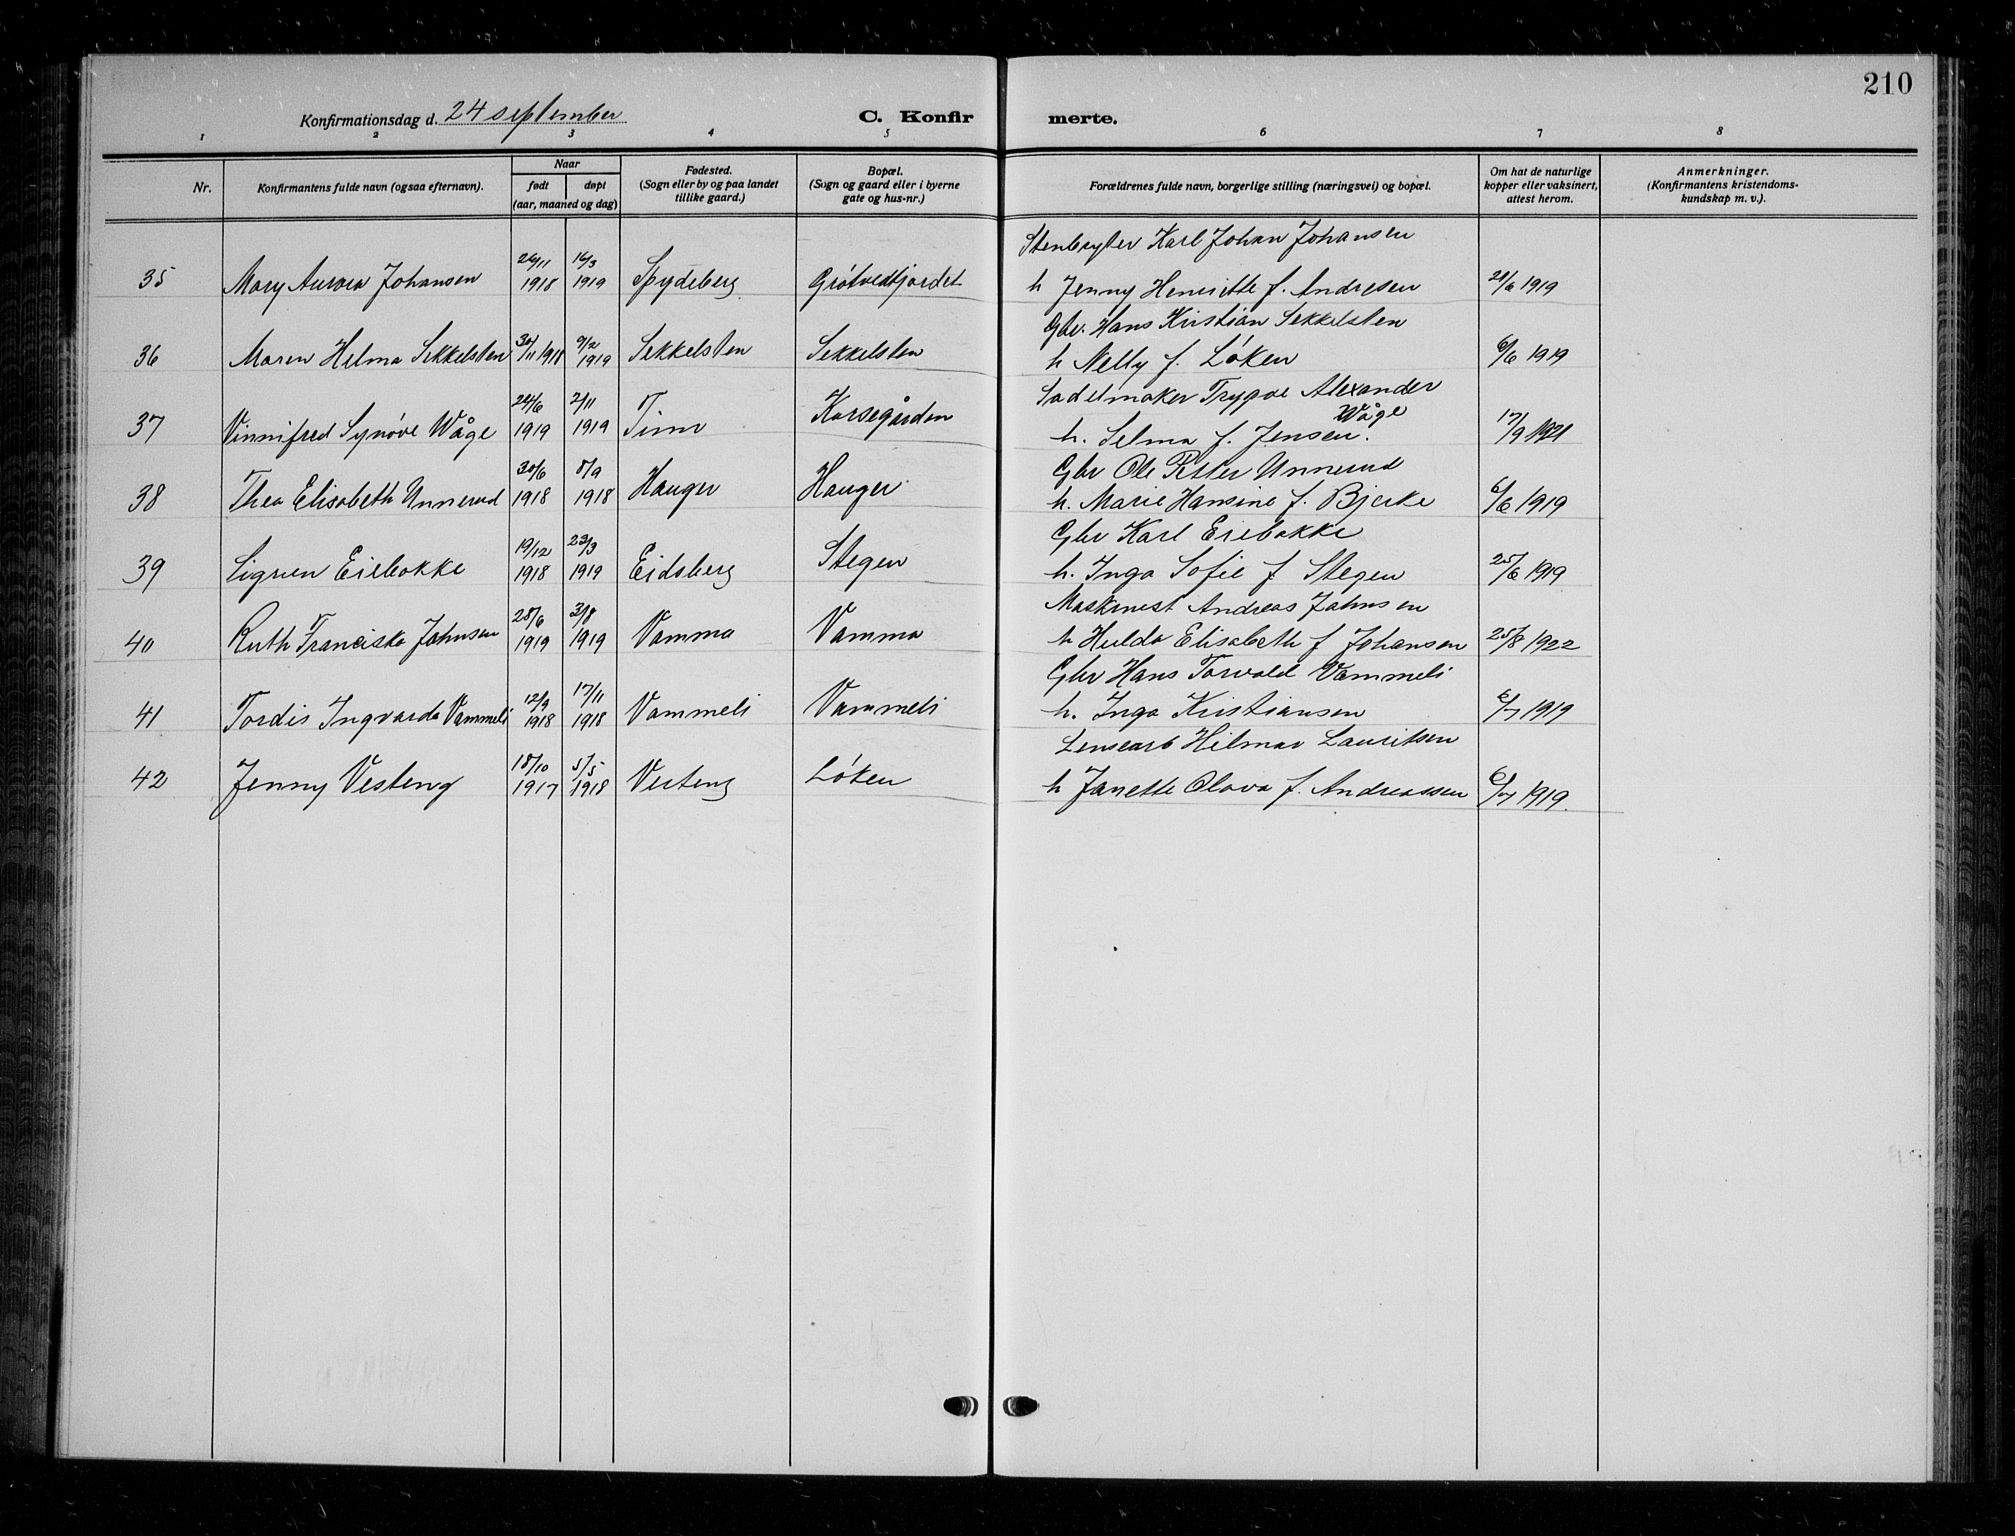 210
Konfirmationsdag d. 24 september C. Konfir merte.
1 2 3 4 5 6 7 8
Nr. Konfirmantens fulde navn (ogsaa efternavn). Naar født døpt (aar, maaned og dag) Fødested. (Sogn eller by og paa landet tillike gaard.) Bopæl. (Sogn og gaard eller i byerne gate og hus-nr.) Forældrenes fulde navn, borgerlige stilling (næringsvei) og bopæl. Om hat de naturlige kopper eller vaksinert, attest herom. Anmerkninger. (Konfirmantens kristendoms-kundskap m. v.).
Stenbryter Karl Johan Johansen
35 Mary Aurora Johansen 26/11 1918 16/3 1919 Spydeberg Grötvedtjordet h Jenny Henriette f. Andresen 21/6 1919
Gbr. Hans Kristian Sekkelsten
36 Maren Helma Sekkelsten 30/11 1918 9/2 1919 Sekkelsten Sekkelsten h Nelly f. Löken 6/6 1919
Sadelmaker Trygve Alexander Våge
37 Vinnifred Synöve Våge 24/6 1919 2/11 1919 Korsegården h. Selma f. Jensen. 17/9 1921
Gbr Ole Peter Unnerud
38 Thea Elisabeth Unnerud 30/6 1918 8/9 1918 Hauger Hauger h. Marie Hansine f. Bjerke 6/6 1919
Gbr Karl Eriebakke
39 Sigrun Eiebakke 19/12 1918 23/3 1919 Eidsberg Stegen h. Inga Sofie f Stegen 25/6 1919
Maskinest Andreas Johnsen
40 Ruth Franciska Johnsen 28/6 1919 3/8 1919 Vamma Vamma h Hulda Elisabeth f Johansen 25/8 1922
Gbr Hans Torvald Vammeli
41 Tordis Ingvarda Vammeli 12/9 1918 17/11 1918 Vammeli Vammeli h. Inga Kristiansen 6/7 1919
Lensearb Hilmar Lauritsen
42 Jenny Vesteng 18/10 1917 5/5 1918 Vesteng Löken h Janette Olava f. Andreassen 6/7 1919.